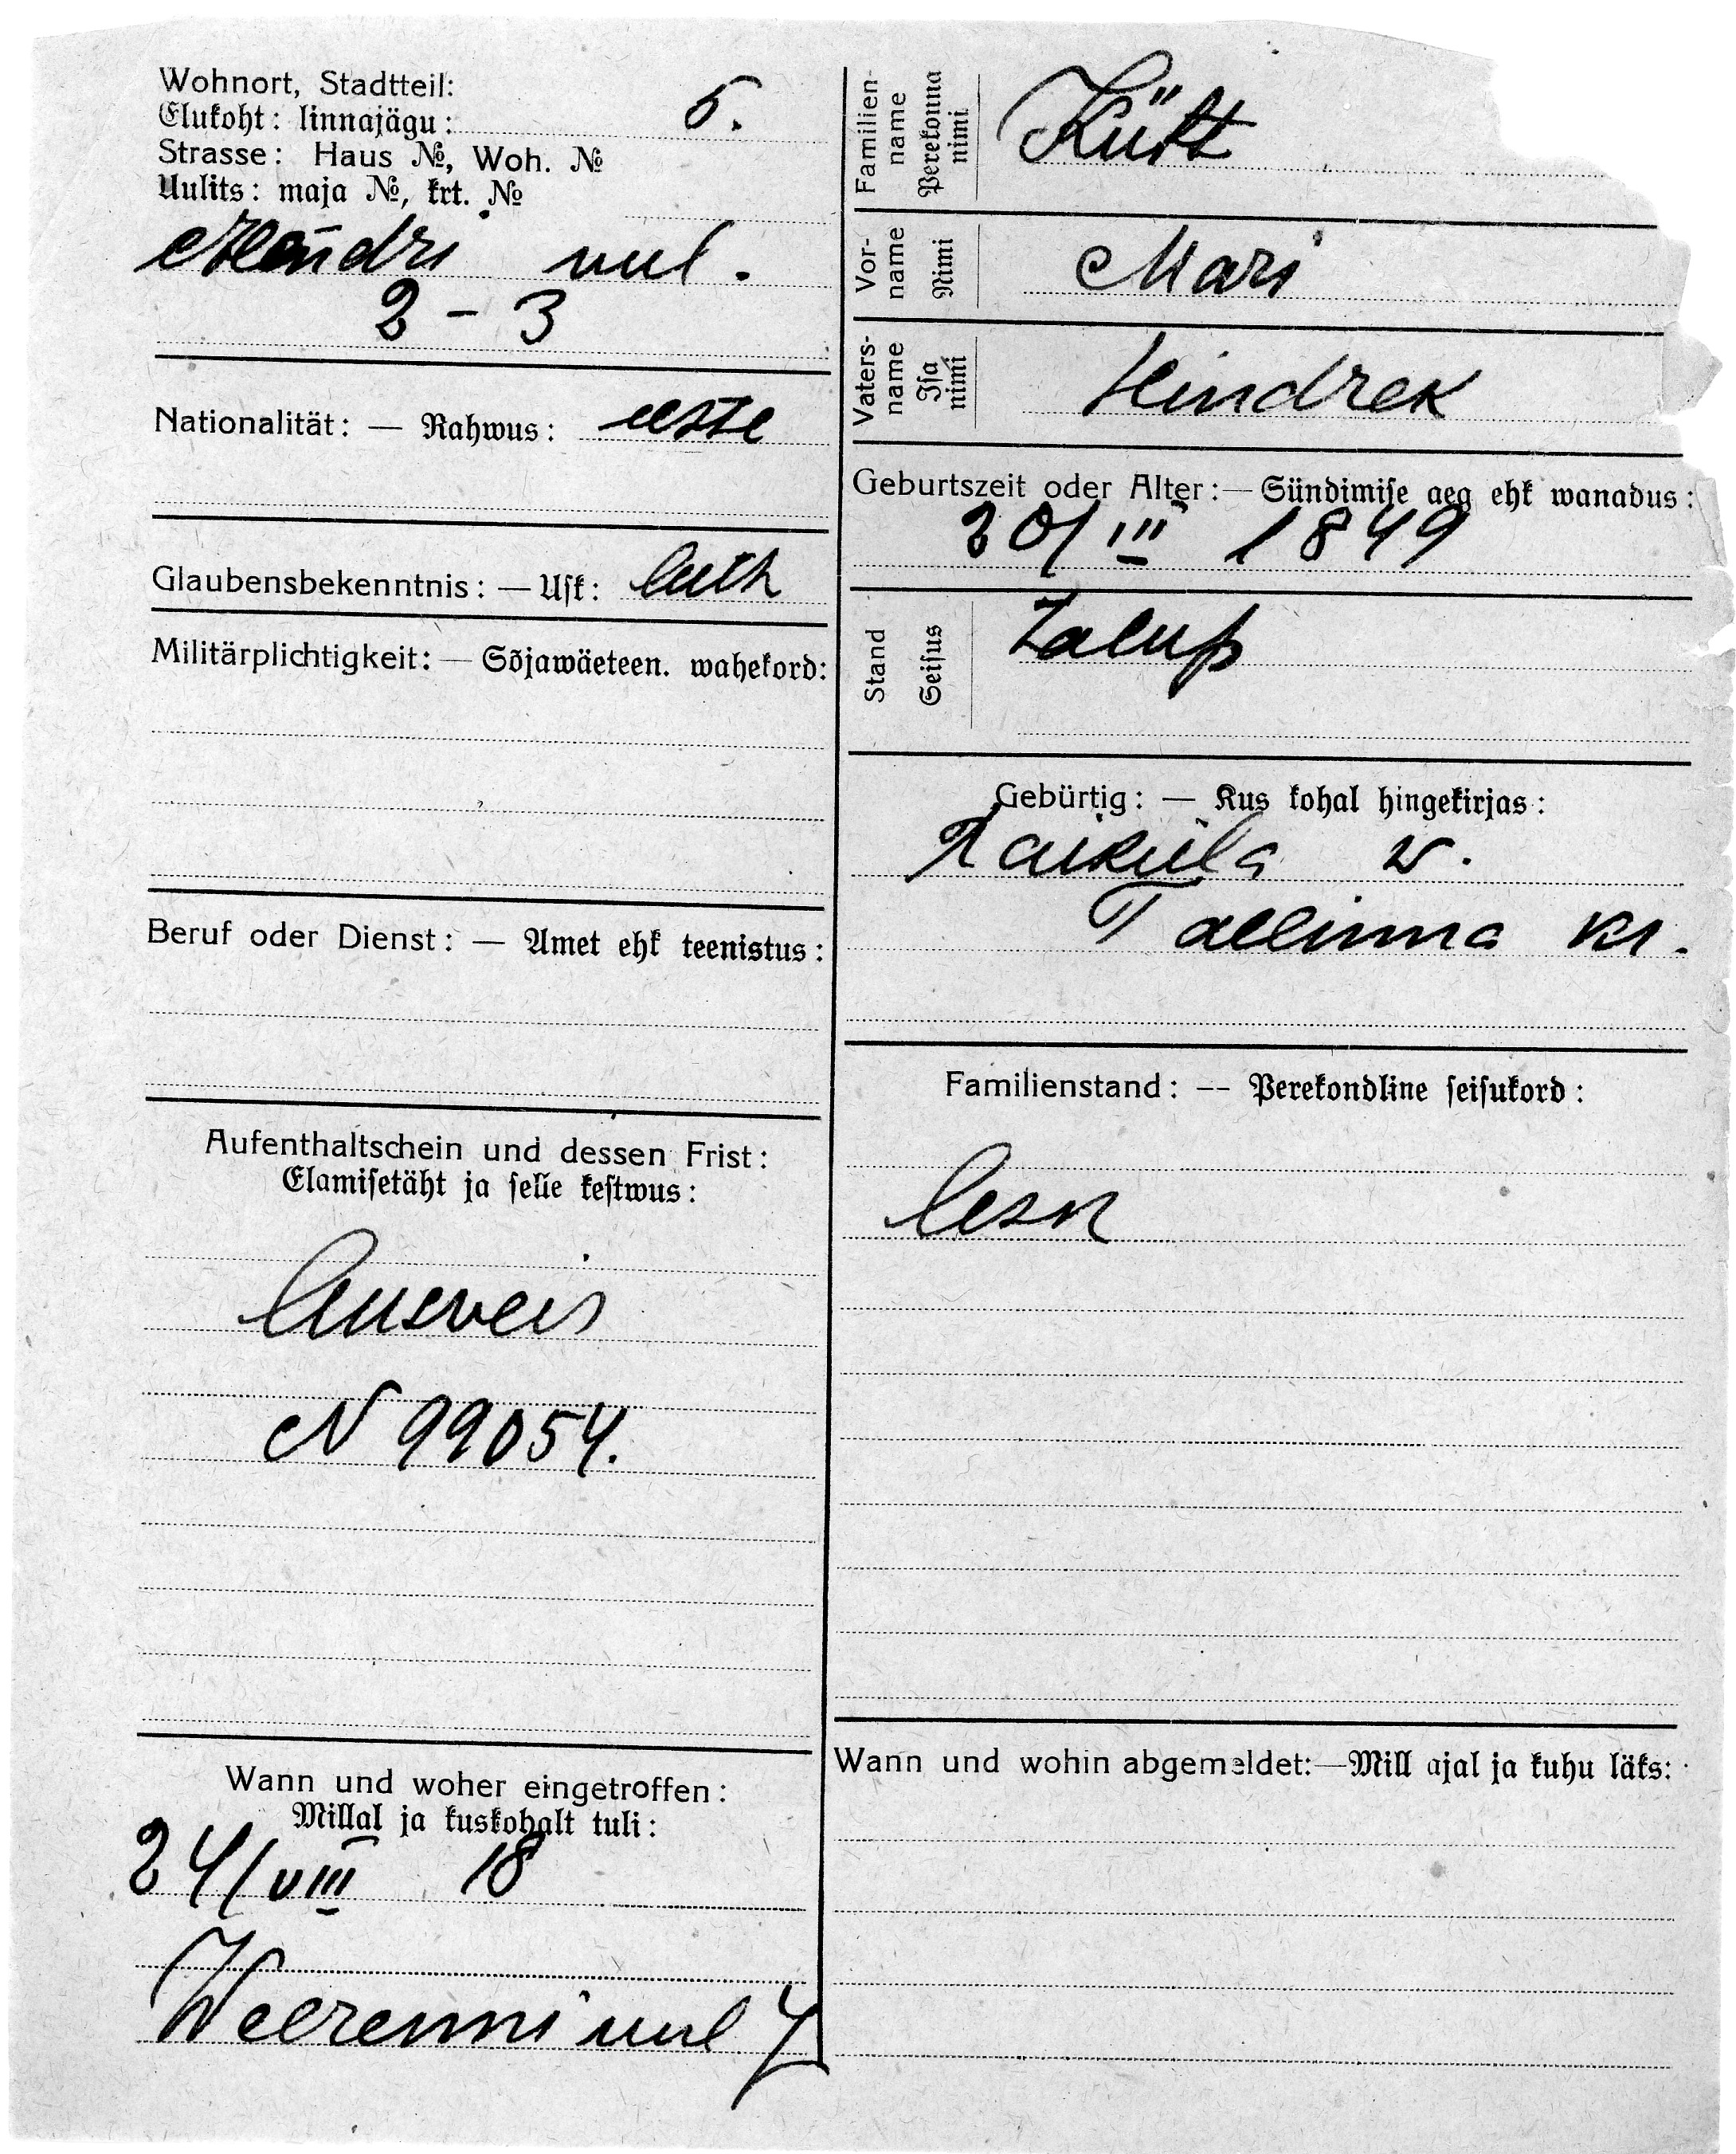 Wohnort, Stadtteil:
Elukoht: linnajägu: 5.
Strasse: Haus №, Woh. №
Uulits: maja №, krt. №
uul.
2 - 3
Nationalität: — Rahwus: eeste
Glaubensbekenntnis: — Usk: luth
Militärplichtigkeit: — Sõjawäeteen. wahekord:
Beruf oder Dienst: — Amet ehk teenistus:
Aufenthaltschein und dessen Frist:
Elamisetäht ja selle kestwus:
Ausveis
N 99054.
Wann und woher eingetroffen:
Millal ja kuskohalt tuli:
24/VIII 18
Weerenni uul 4
Familien-name Perekonna nimi Kütt
Vor-name Nimi Mari
Vaters-name Isa nimi Hindrek
Geburtszeit oder Alter: — Sündimise aeg ehk wanadus:
20/III 1849
Stand Seisus Talup
Gebürtig: — Kus kohal hingekirjas:
Raiküla w.
Tallinna kr.
Familienstand: -- Perekondline seisukord:
lesk
Wann und wohin abgemeldet: — Mill ajal ja kuhu läks: